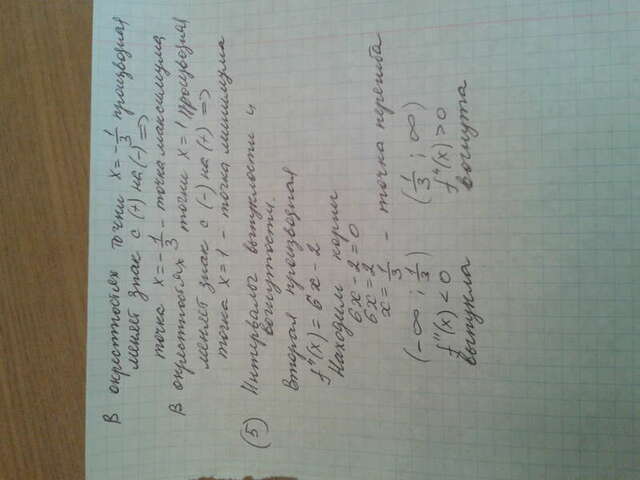 В окрестностях точки x = -1/3 производная
меняет знак с (+) на (-) =>
точка x = -1/3 - точка максимума
В окрестностях точки x = 1 производная
меняет знак с (-) на (+) =>
точка x = 1 - точка минимума
(5) Интервалы выпуклости и
вогнутости.
Вторая производная
f''(x) = 6x - 2
Находим корни
6x - 2 = 0
6x = 2
x = 1/3 - точка перегиба
(-∞ ; 1/3) (1/3 ; ∞)
f''(x) < 0 f''(x) > 0
выпукла вогнута